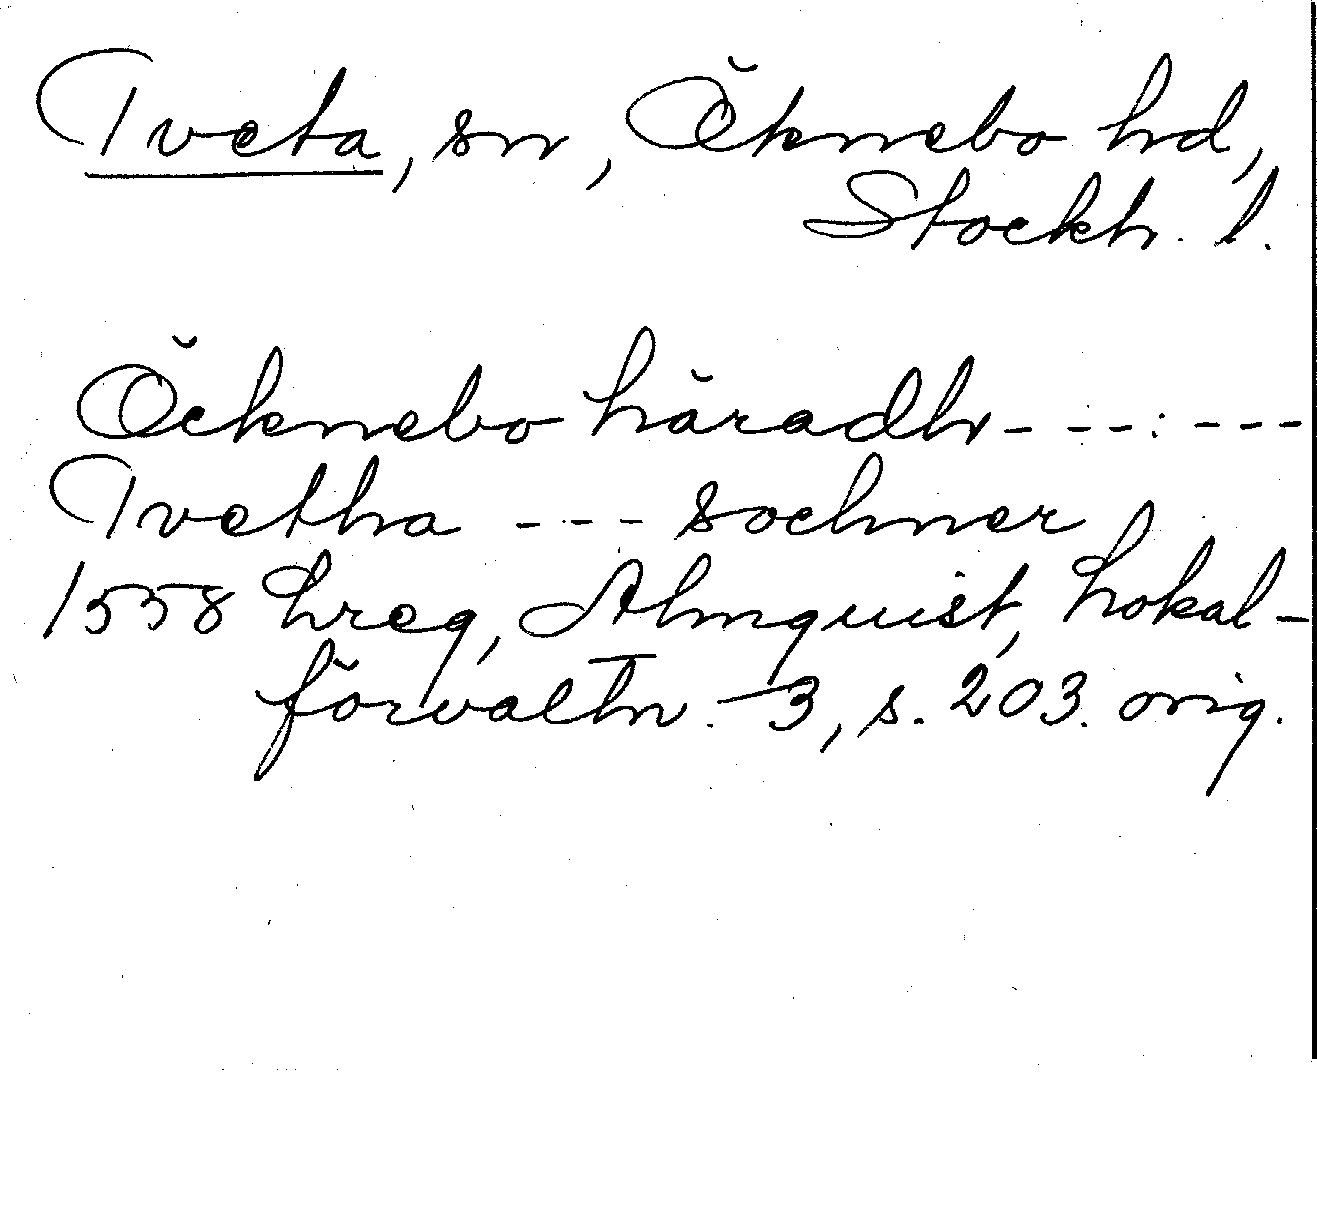 Tveta, sn, Öknebo hd,
Stockh. l.
Öcknebo häradh - - - : - - -
Tvetha - - - sochner
1558 hreg, Almquist, Lokal-
förvaltn. 3, s. 203. orig.